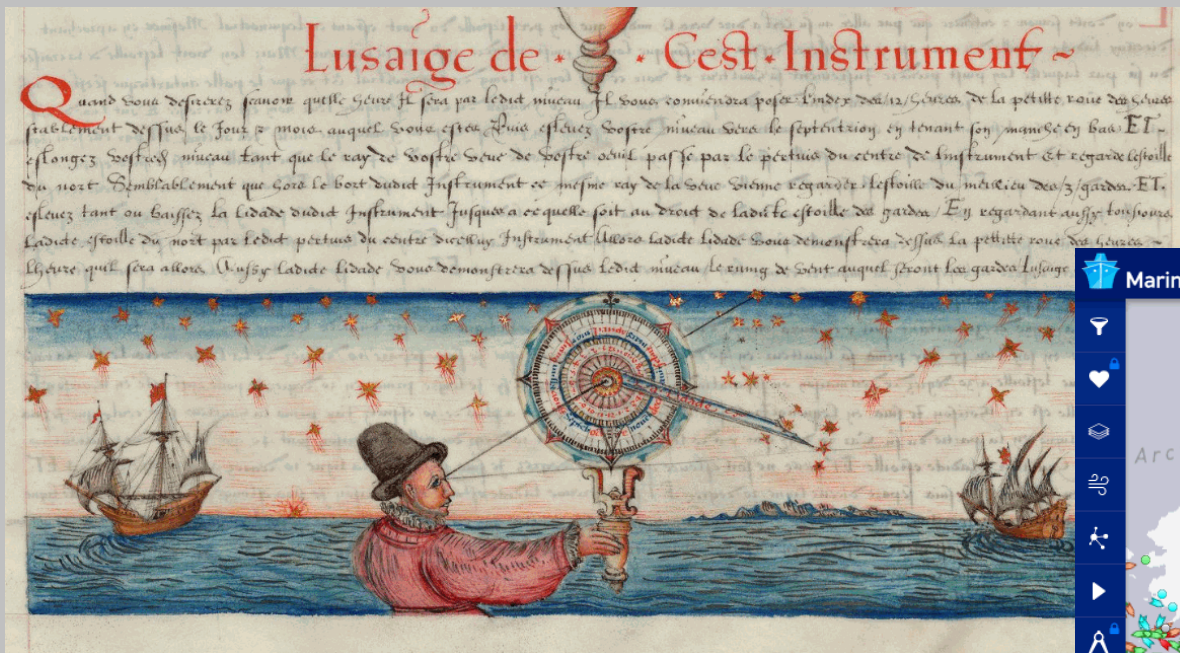 Lusaige de · · Cest · Instrument ~
Quand vous desirerez scauoir quelle heure Il sera par ledict niueau Il vous conuiendra poser lindex des /12/ heures de la petitte roue des heures
stablement dessus le Jour & mois auquel vous estes Puis esleuez vostre niueau vers le septentrion en tenant son manche en bas ET
eslongez niueau tant que le ray de vostre veue de vostre oeuil passe par le pertuis du centre de Linstrument Et regarde lestoille
du nort Semblablement que hors le bort dudict Instrument ce mesme ray de la veue vienne regarder lestoille du des /3/ gardes ET
esleuez tant ou baissez la lidade dudict Instrument Jusques a ce quelle soit au droit de ladicte estoille des gardes / En regardant aussy tousiours
Ladicte estoille du nort par ledict pertuis du centre Instrument Allors ladicte lidade vous demonstrera dessus la pettitte roue des heures ~
Lheure quil sera allors Aussy ladicte lidade vous demonstrera dessus ledict niueau le de vent auquel seront les gardes Lusaige
Marin
Arc